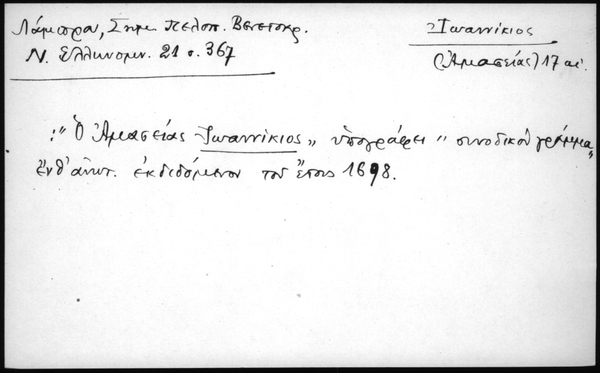 Λάμπρου, Σημ. Πελοπ. Βενετοκρ.
Ν. Ελληνομν. 21 σ. 367
Ἰωαννίκιος
(Ἀμασείας) 17 αἰ.
:" Ὁ Ἀμασείας Ἰωαννίκιος „ ὑπογράφει " συνοδικὸν γράμμα „
ἔνθ' ἀνωτ. ἐκδιδόμενον τοῦ ἔτους 1698.